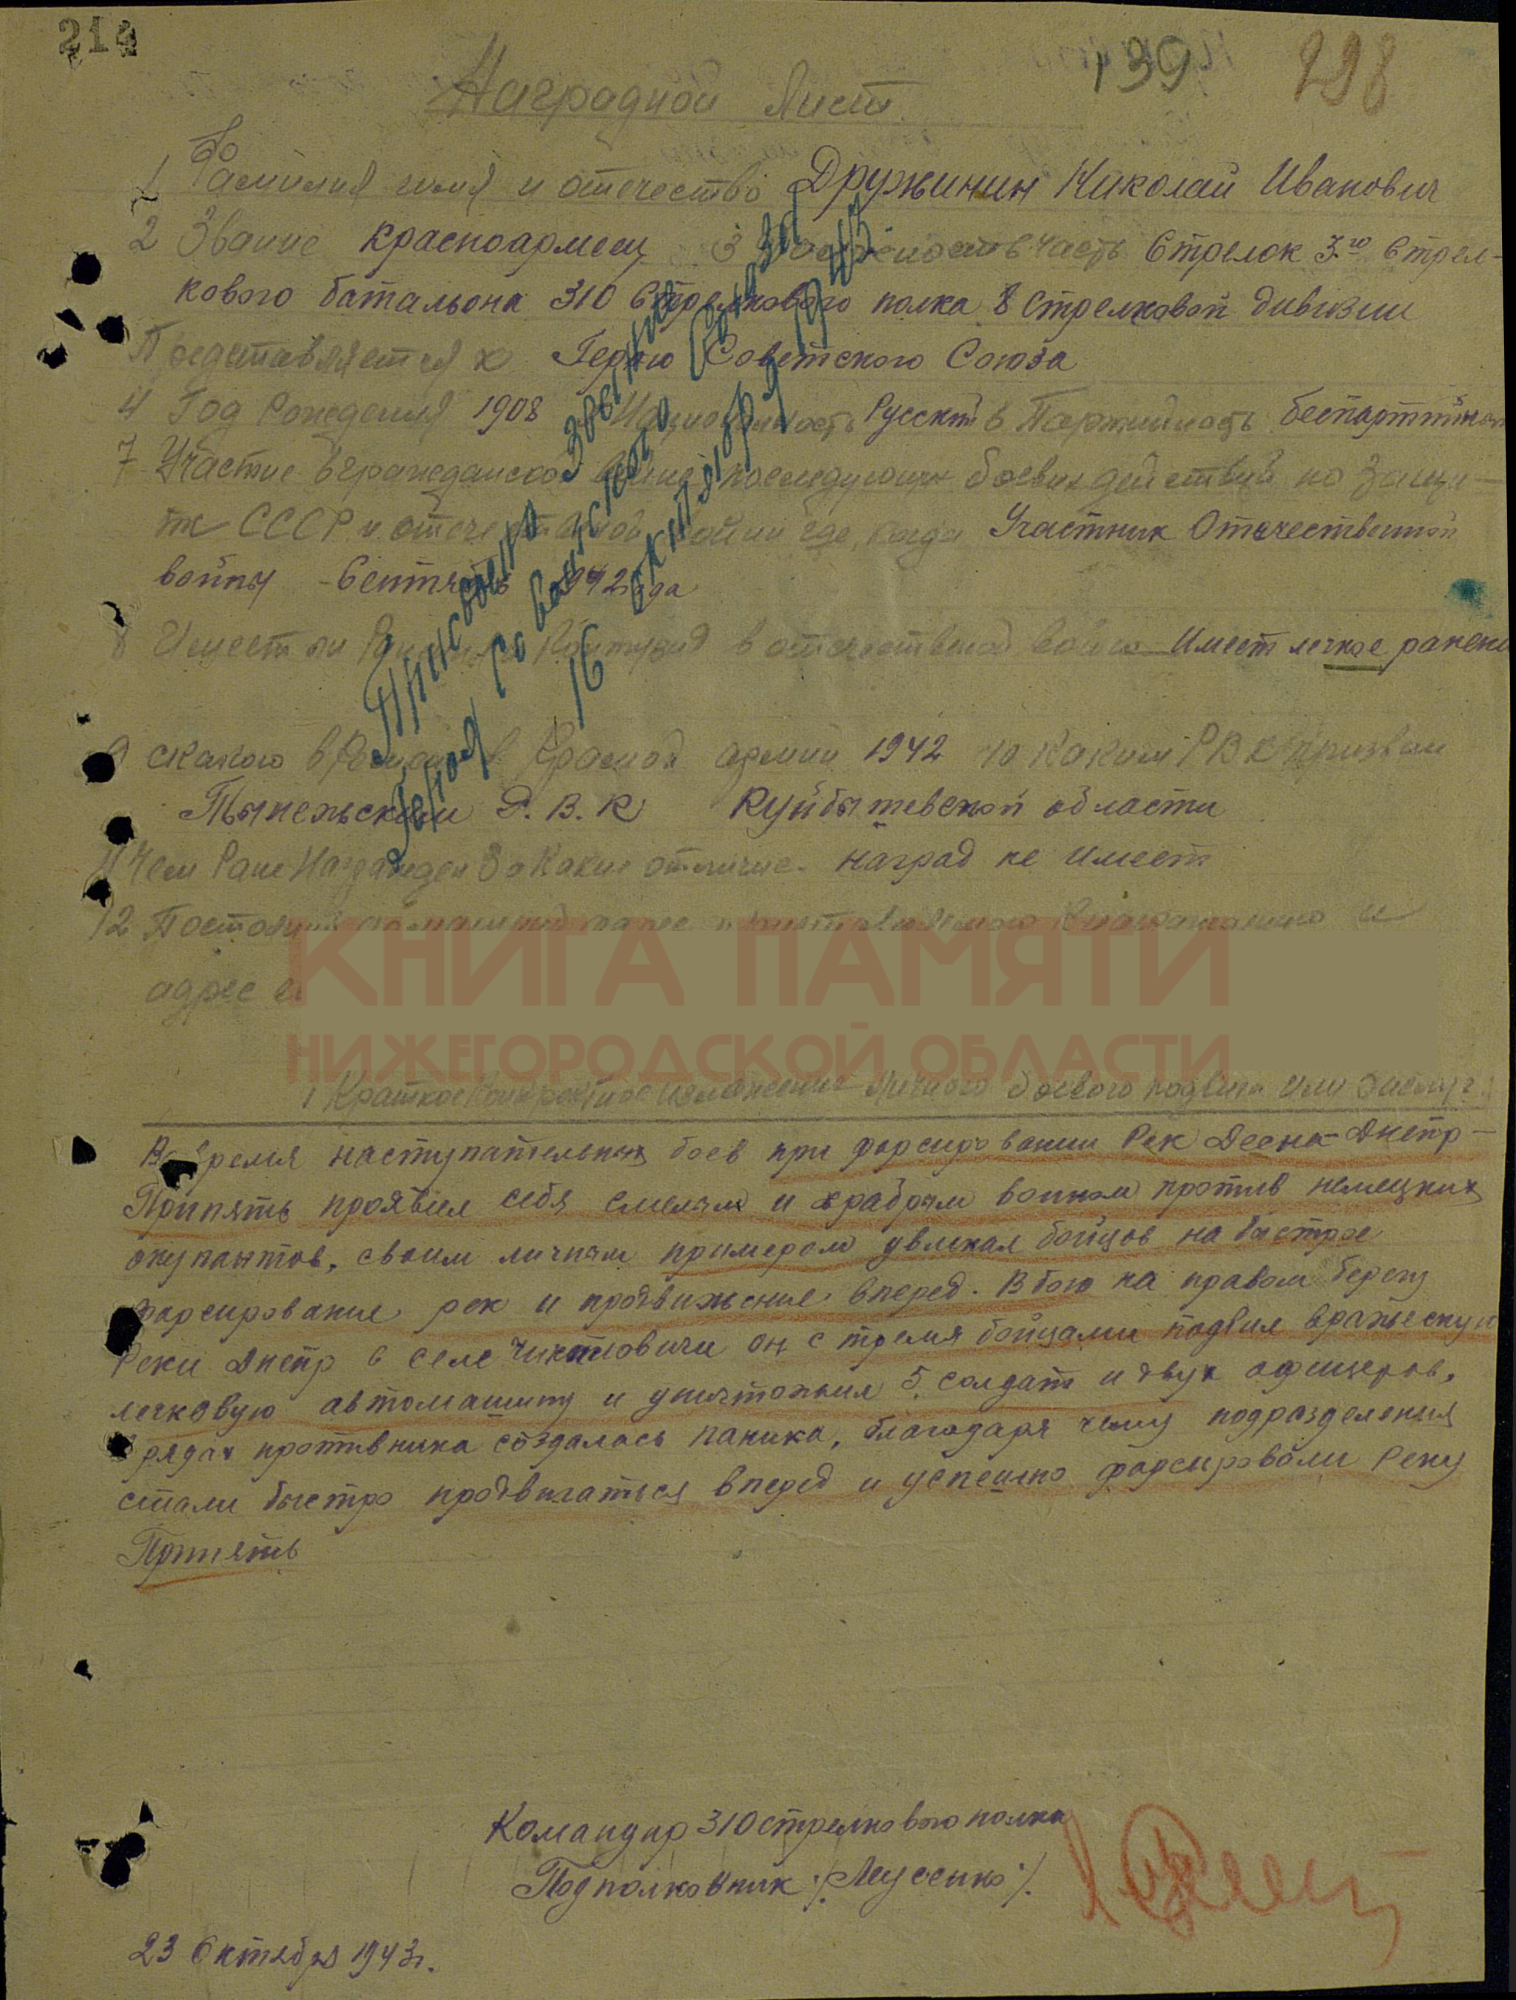 214
139
298
Наградной лист
1 Фамилия имя и отечество Дружинин Николай Иванович
2 Звание красноармеец 3 Должность часть Стрелок 3го Стрел-
кового батальона 310 Стрелкового полка 8 Стрелковой дивизии
Представляется к Герою Советского Союза
4 Год Рождения 1908 Национальность Русский 6 Партийность беспартийный
7 Участие в гражданской войне последующих боевых действий по защи-
те СССР и отечественной войны где, когда Участник Отечественной
войны Сентябрь 1942 года
8 Имеет ли контузий в отечественной войне Имеет легкое ранение
9 с какого времени в Красной армии 1942 10 Каким РВК призван
Р.В.К Куйбышевской области
11 Чем Ране Награжден За Какие отличие. наград не имеет
12
адрес
Присвоено звание
Героя Советского Союза
16 октября 1943
КНИГА ПАМЯТИ
НИЖЕГОРОДСКОЙ ОБЛАСТИ
1 Краткое Конкретное изложение личного боевого подвига или заслуг
Во время наступательных боев при форсировании Рек Десна-Днепр-
Припять проявил себя смелым и храбрым воином против немецких
окупантов, своим личным примером увлекал бойцов на быстрое
форсирование рек и продвижение вперед. В бою на правом берегу
Реки Днепр в селе он с тремя бойцами подбил вражескую
легковую автомашину и уничтожил 5 солдат и двух офицеров,
В рядах противника создалась паника, благодаря чему подразделения
стали быстро продвигаться вперед и успешно форсировали Реку
Припять
Командир 310 стрелкового полка
Подполковник /Мусенко/.
23 Октября 1943г.